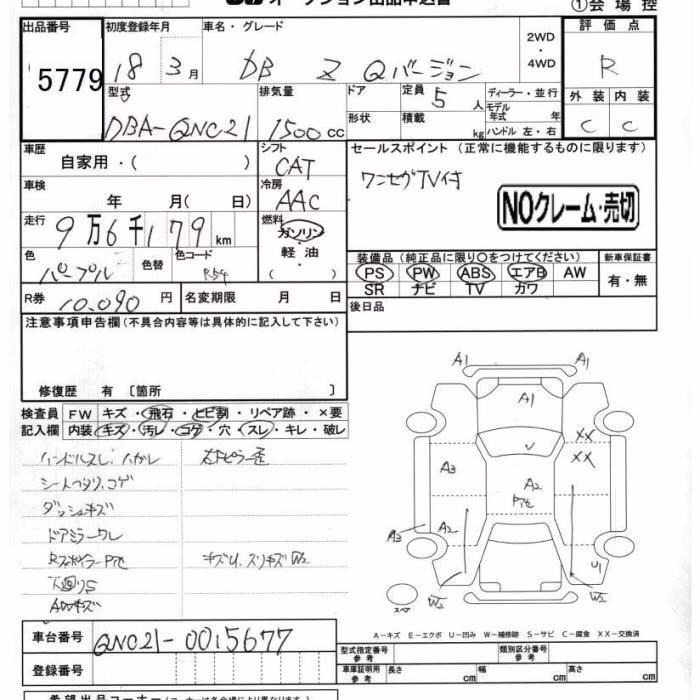 オークション出品申込書
①会場控
出品番号 5779
初度登録年月 18年 3月
車名・グレード bB Z Qバージョン
2WD・4WD
評価点 R
型式 DBA-QNC21
排気量 1500cc
ドア
形状
定員 5人
積載 kg
ディーラー・並行
モデル年式 年
ハンドル 左・右
外装 C 内装 C
車歴 自家用・( )
シフト CAT
セールスポイント (正常に機能するものに限ります)
ワンセグTV付
NOクレーム・売切
車検 年 月( 日)
冷房 AAC
走行 9万6千179km
燃料 ガソリン・軽油・( )
色 パープル 色替 色コード R54
装備品 (純正品に限り○をつけてください) 新車保証書
PS PW ABS エアB AW 有・無
SR ナビ TV カワ
R券 10,090円 名変期限 月 日
後日品
注意事項申告欄(不具合内容等は具体的に記入して下さい)
修復歴 有 〔箇所 〕
検査員記入欄
FW キズ・飛石・ヒビ割・リペア跡・×要
内装 キズ・汚レ・コゲ・穴・スレ・キレ・破レ
ハンドルスレ、ハガレ
シートヘタリ、コゲ
ダッシュキズ
ドアミラーワレ
下廻りS
A1 A1
A1
XX
XX
A3
A2
A2
A3
U1
W2 W2
スペア
A-キズ E-エクボ U-凹み W-補修跡 S-サビ C-腐食 XX-交換済
車台番号 QNC21-0015677
登録番号
型式指定番号 参考 類別区分番号 参考
車庫証明用 参考 長さ cm 幅 cm 高さ cm
希望出品コーナー